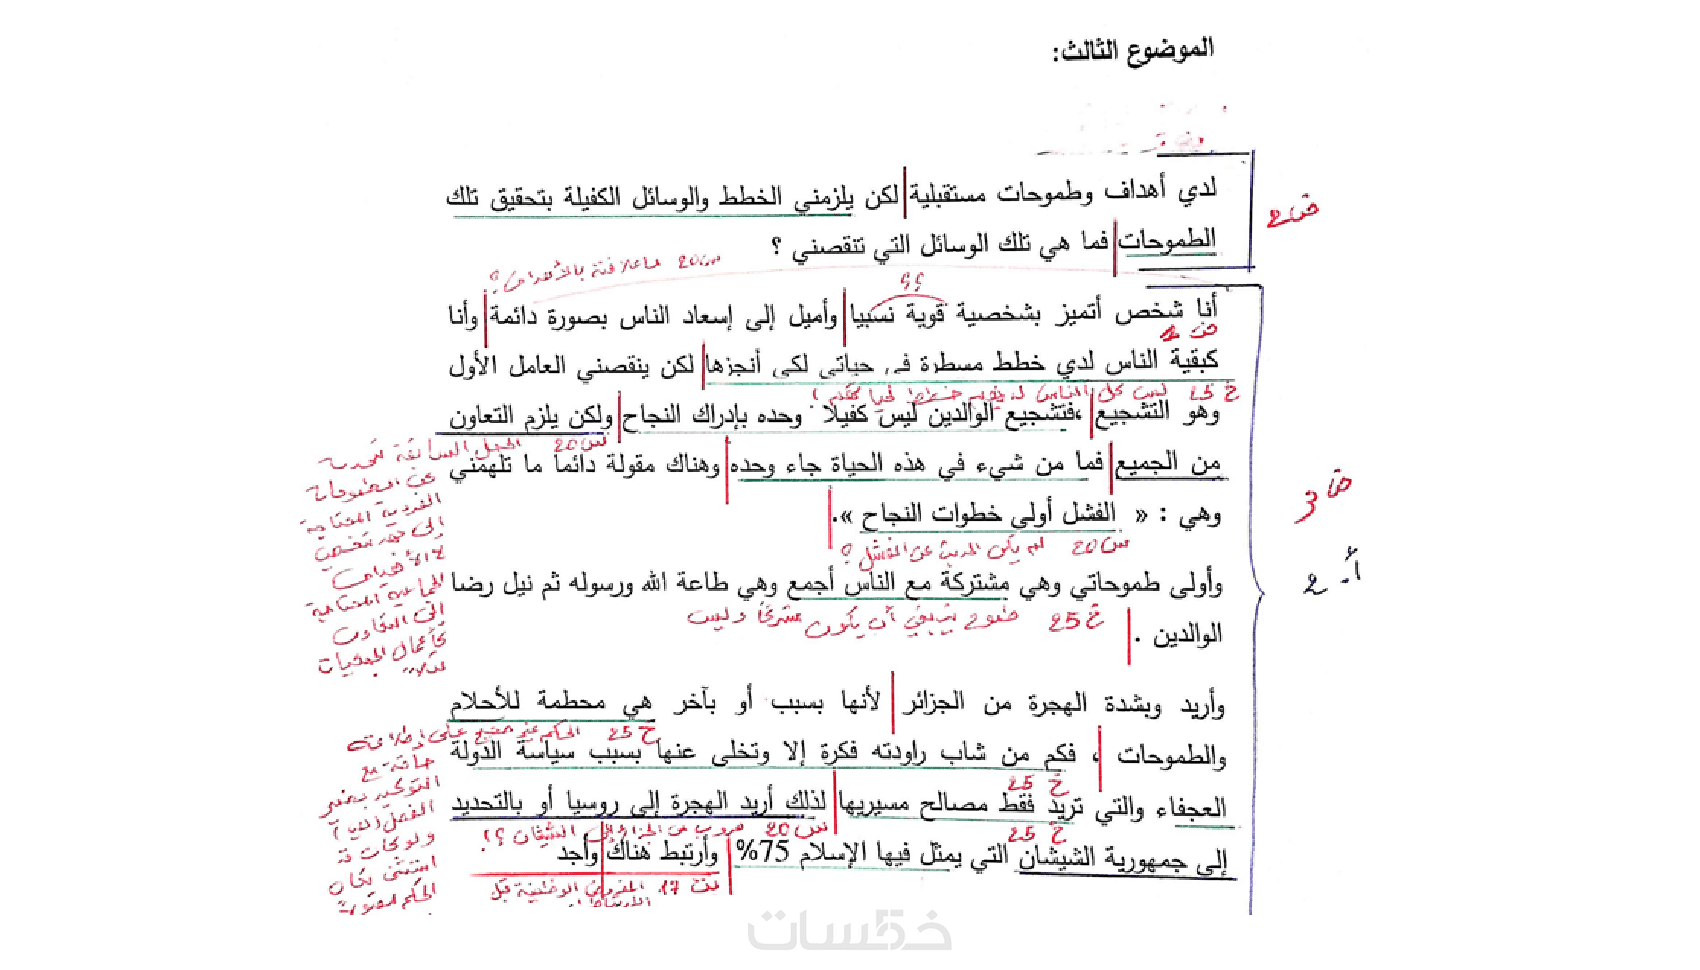 الموضوع الثالث:
لدي أهداف وطموحات مستقبلية لكن يلزمني الخطط والوسائل الكفيلة بتحقيق تلك
الطموحات فما هي تلك الوسائل التي تنقصني ؟
س20 ما علاقته بالأهداف؟
؟؟
أنا شخص أتميز بشخصية قوية نسبيا وأميل إلى إسعاد الناس بصورة دائمة وأنا
كبقية الناس لدي خطط مسطرة في حياتي لكي أنجزها لكن ينقصني العامل الأول
خ25 ليس كل الناس لديهم خطط
وهو التشجيع ،فتشجيع الوالدين ليس كفيلا وحده بإدراك النجاح ولكن يلزم التعاون
س20 الجمل السابقة تتحدث
من الجميع فما من شيء في هذه الحياة جاء وحده وهناك مقولة دائما ما تلهمني
عن الطموحات
الفردية المحتاجة
وهي : « الفشل أولى خطوات النجاح ».
إلى جهد شخصي
س20 لم يكن الحديث عن الفشل؟
لا الأهداف
وأولى طموحاتي وهي مشتركة مع الناس أجمع وهي طاعة الله ورسوله ثم نيل رضا
الجماعية المحتاجة
إلى التعاون
خ25 طموح ينبغي أن يكون مشتركا وليس
الوالدين .
كأعمال الجمعيات
وأريد وبشدة الهجرة من الجزائر لأنها بسبب أو بآخر هي محطمة للأحلام
خ25 الحكم غير صحيح على إطلاقه
والطموحات ، فكم من شاب راودته فكرة إلا وتخلى عنها بسبب سياسة الدولة
خ25
التوكيد بضمير
العجفاء والتي تريد فقط مصالح مسيريها لذلك أريد الهجرة إلى روسيا أو بالتحديد
الفصل (هي)
خ25
س20 هروب من الجزائر إلى الشيشان ؟!
إلى جمهورية الشيشان التي يمثل فيها الإسلام 75% وأرتبط هناك وأجد
استثنى لكان
الحكم مقبولا
خمسات